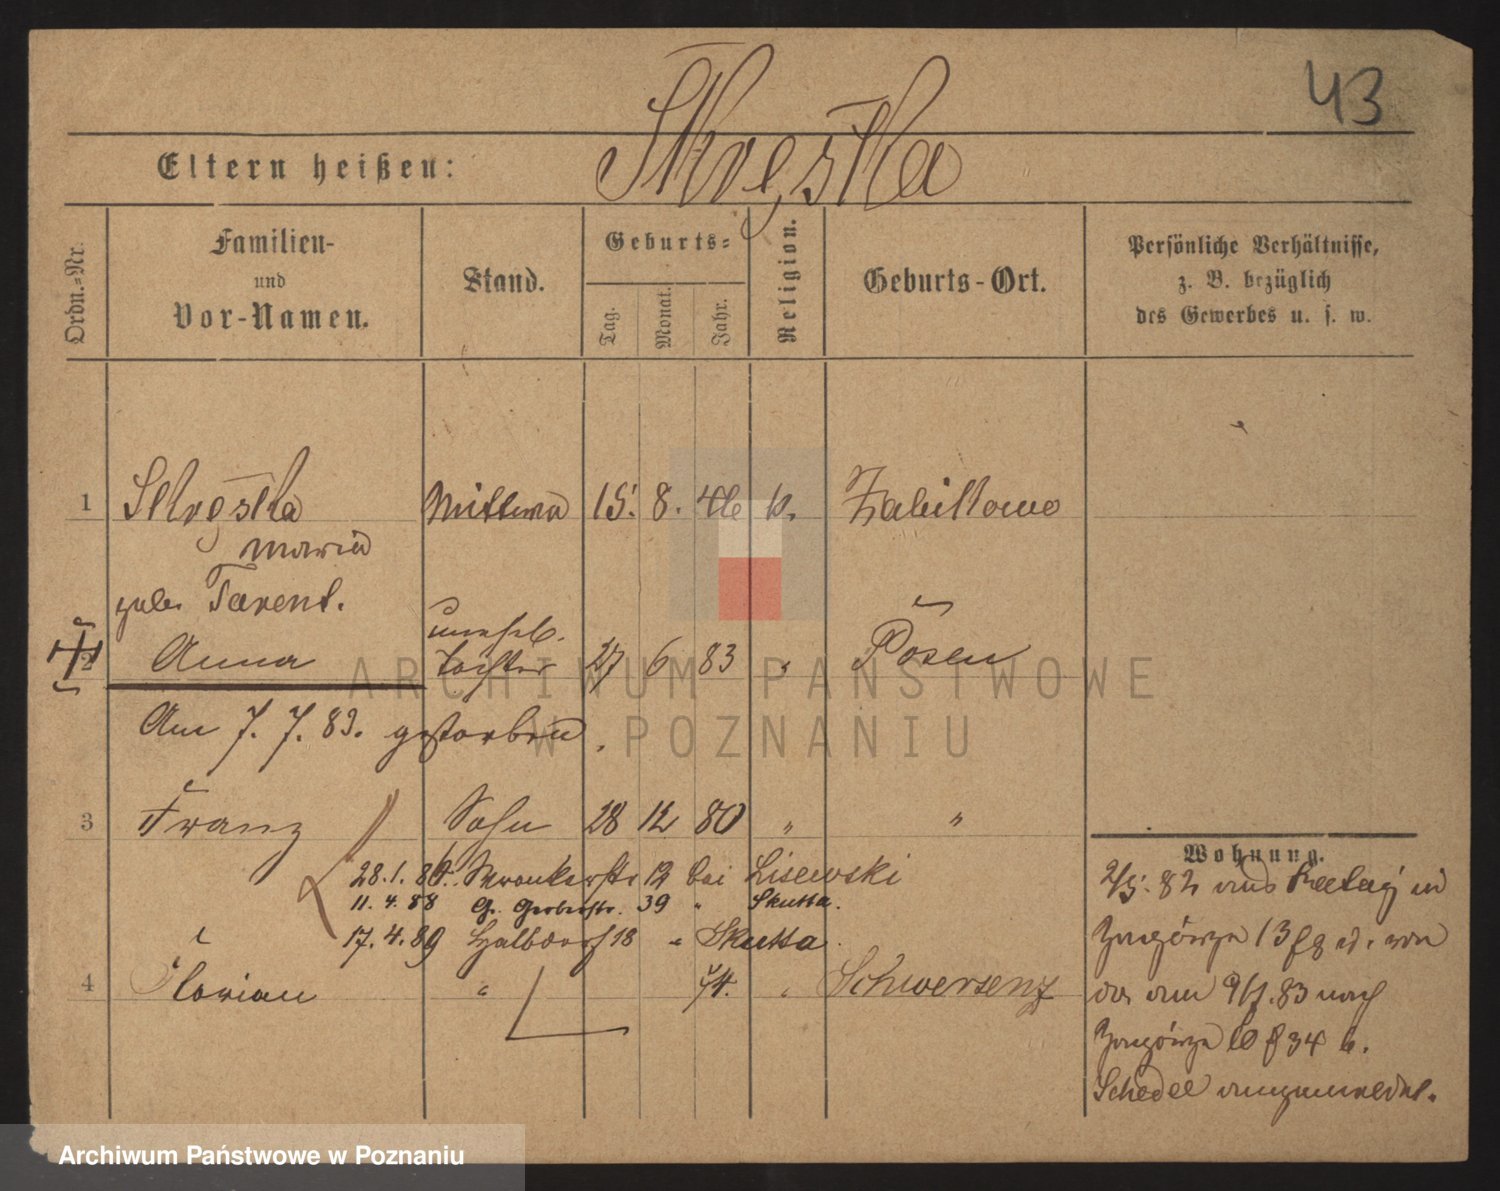 43
Eltern heißen: Skręska
Ordn.-Nr.
Familien-
und
Vor-Namen.
Stand.
Geburts-
Tag.
Monat.
Jahr.
Religion.
Geburts-Ort.
Persönliche Verhältnisse,
z. B. bezüglich
des Gewerbes u. s. w.
1 Skręska 15. 8. 46 k. Zabikowo
Maria
geb. Tarent.
unehel.
2 Anna Tochter 27 6 83 " Posen
Am 7. 7. 83. gestorben.
3 Franz Sohn 28 12 80 " "
28.1.86. Wronkerstr 12 bei Lisewski
11. 4. 88 Gr. Gerberstr. 39 " Skutta.
17. 4. 89 Halbdorf 18 " Skutta.
4 Florian " 74. " Schwersenz
Wohnung.
2/5. 82 aus
Zagórze 13 von
da am 9/7. 83 nach
Zagórze 34 b.
Schedel angemeldet.
ARCHIWUM PAŃSTWOWE
W POZNANIU
Archiwum Państwowe w Poznaniu